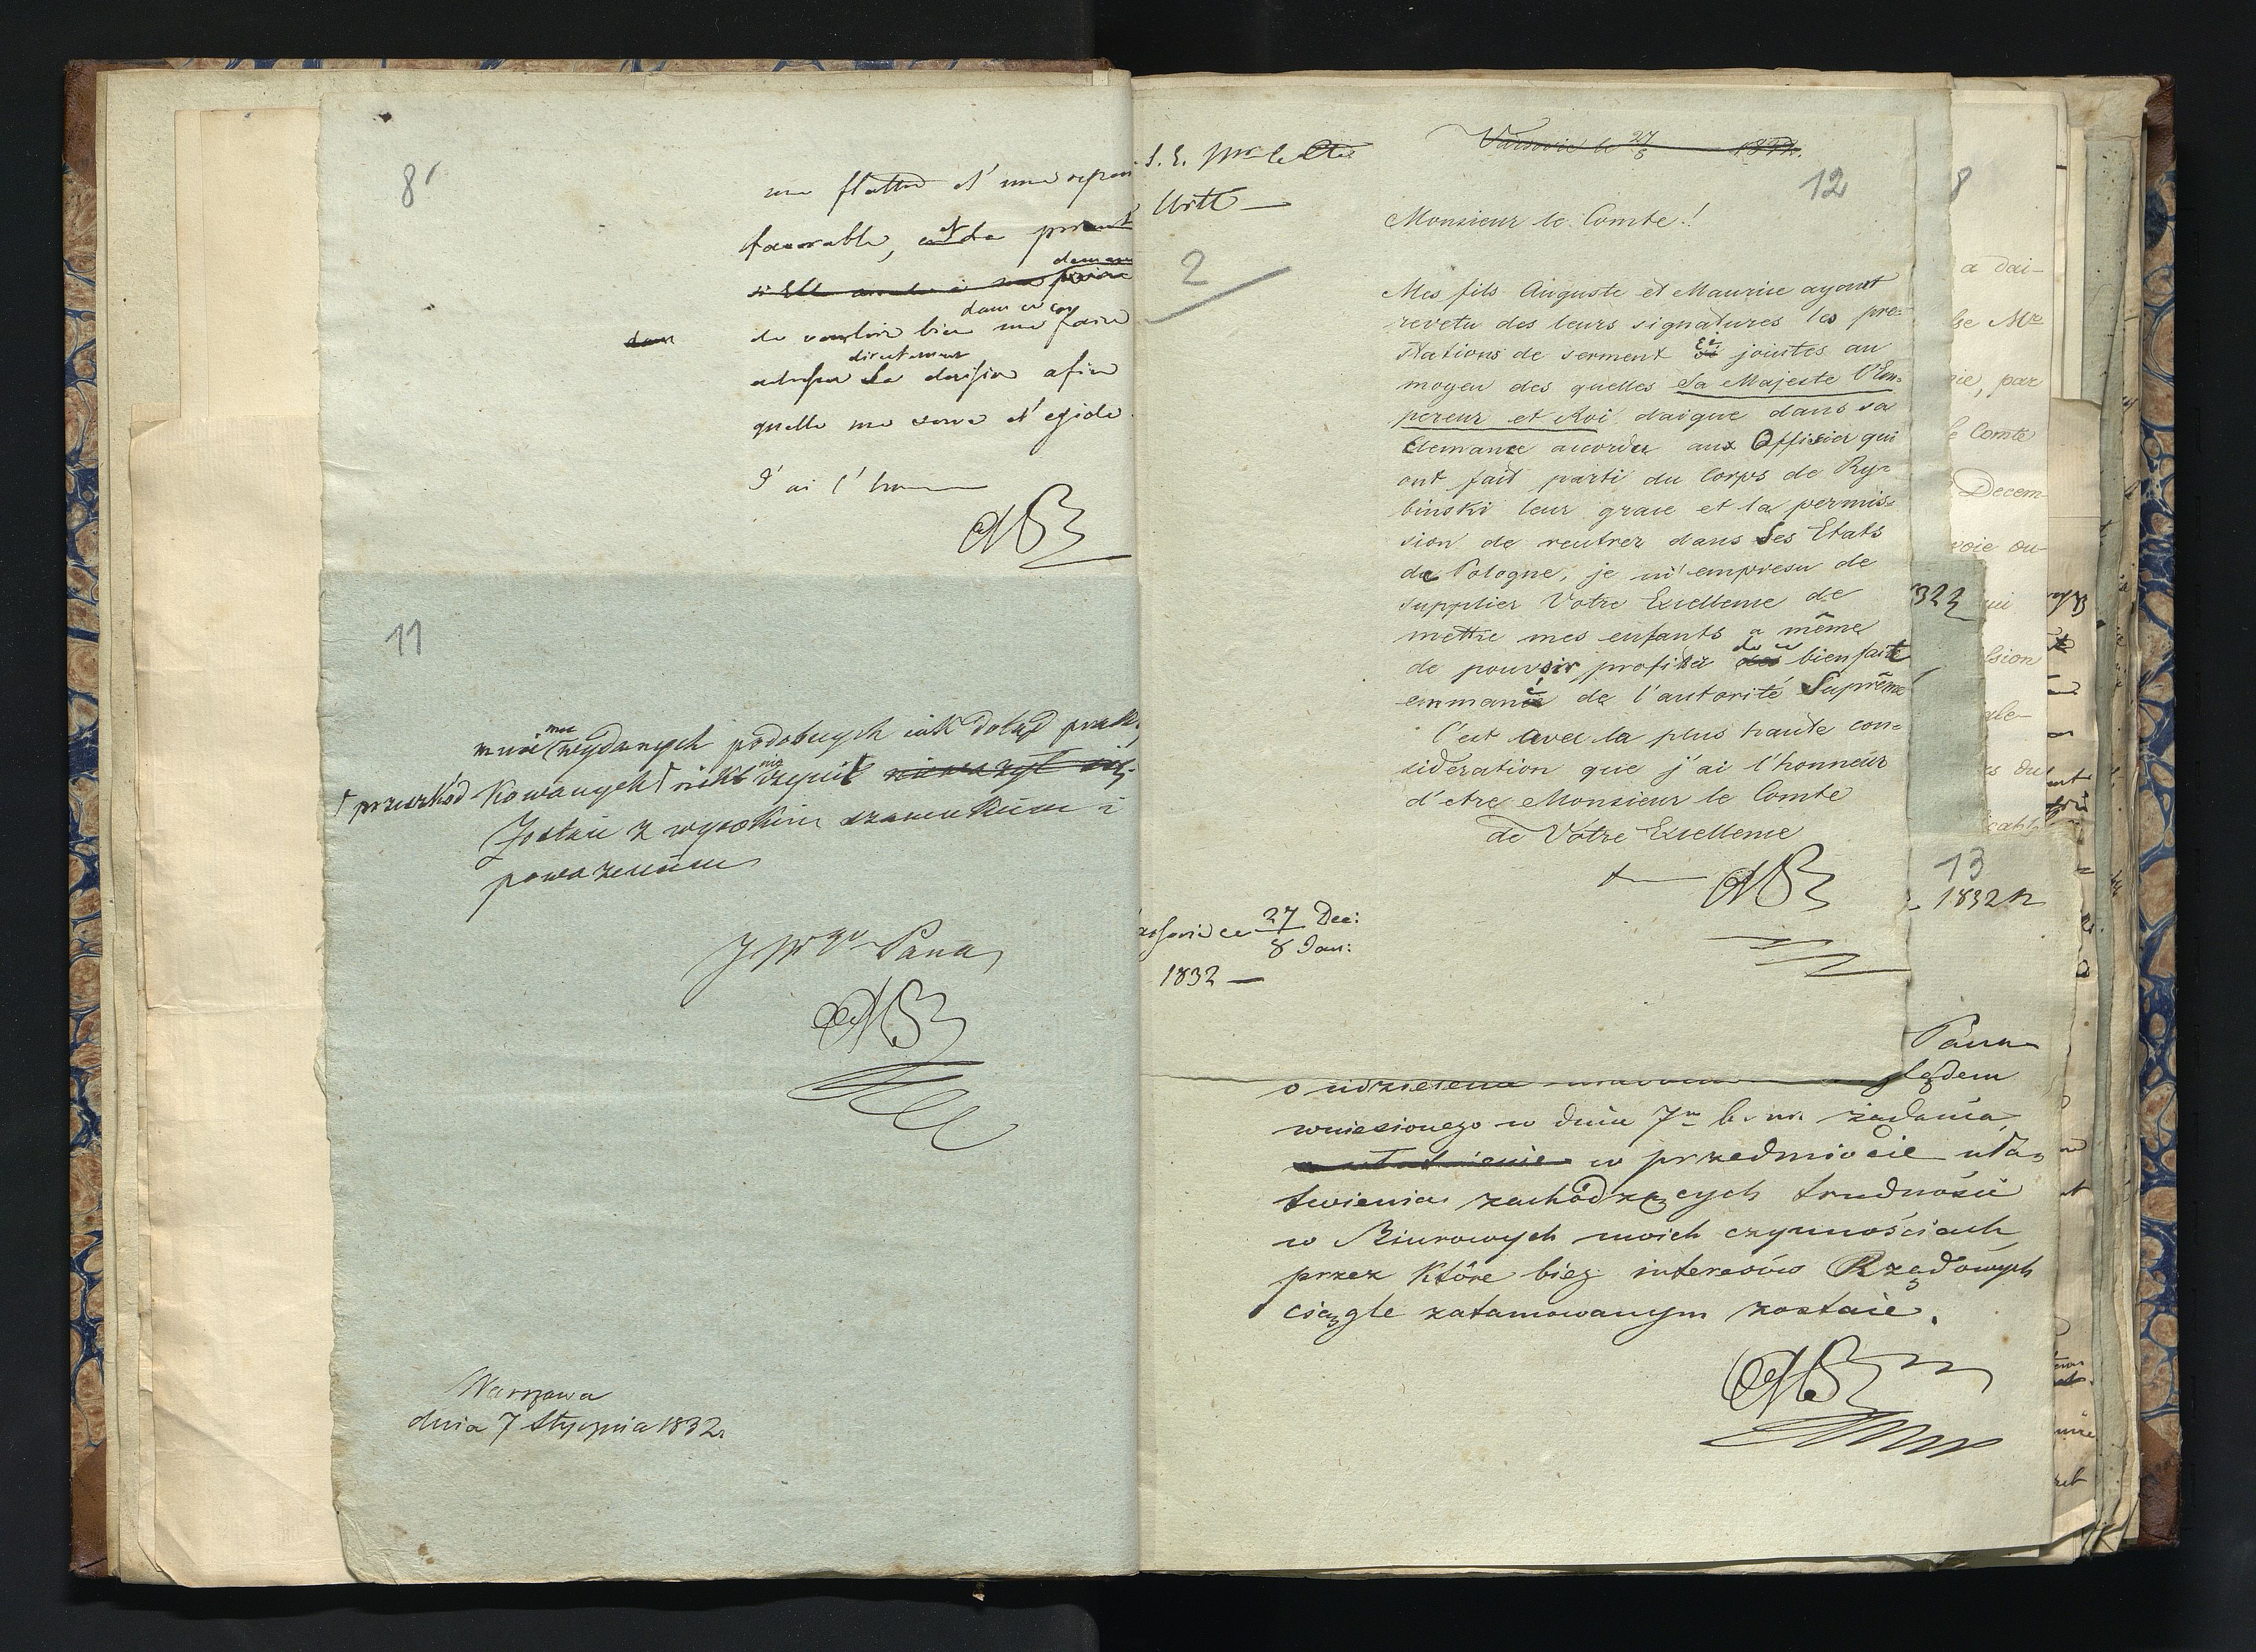 8'
me flatte d'une repon
favorable, et de
demann
dans ce cas
de vouloir bien me faire
directement
adresser Sa decision afin
quelle me serve d'egide.
J'ai l'hon
11
wydanych podobnych iak dotąd prakty
przeszkód kowanych nikt nie czynił
Zostaię z wysokiem szacunkiem i
poważaniem
JW Pana
Warszawa
dnia 7 Stycznia 1832
S. E. Mr le Cte
Witt
2
Varsovie le 27/8 1832.
12
Monsieur le Comte!
Mes fils Auguste et Maurice ayant
revetu des leurs signatures les pre=
stations de serment ci jointes au
moyen des quelles Sa Majeste l'Em=
pereur et Roi daigne dans sa
Clemance accorder aux Officier qui
ont fait parti du Corps de Ry=
binski leur grace et la permis=
sion de rentrer dans Ses Etats
de Pologne, je m'empresse de
supplier Votre Excellence de
mettre mes enfants a même
de pouvoir profiter de ce bienfait
emmané de l'autorité Suprême
C'est avec la plus haute con=
sideration que j'ai l'honneur
d'etre Monsieur le Comte
de Votre Excellence
27 Dec:
8 Jan:
1832 —
8
a dai-
se Mr
nie, par
le Comte
Decem-
voie ou-
lsion
ale-
13
1832 r
Pana
o udzielenie
ględem
wniesionego w dniu 7m b. m. żądania
w przedmiocie uła=
twienia zachodzących trudności
w Biurowych moich czynnościach
przez które bieg interesów Rządowych
ciągle zatamowanym zostaie.